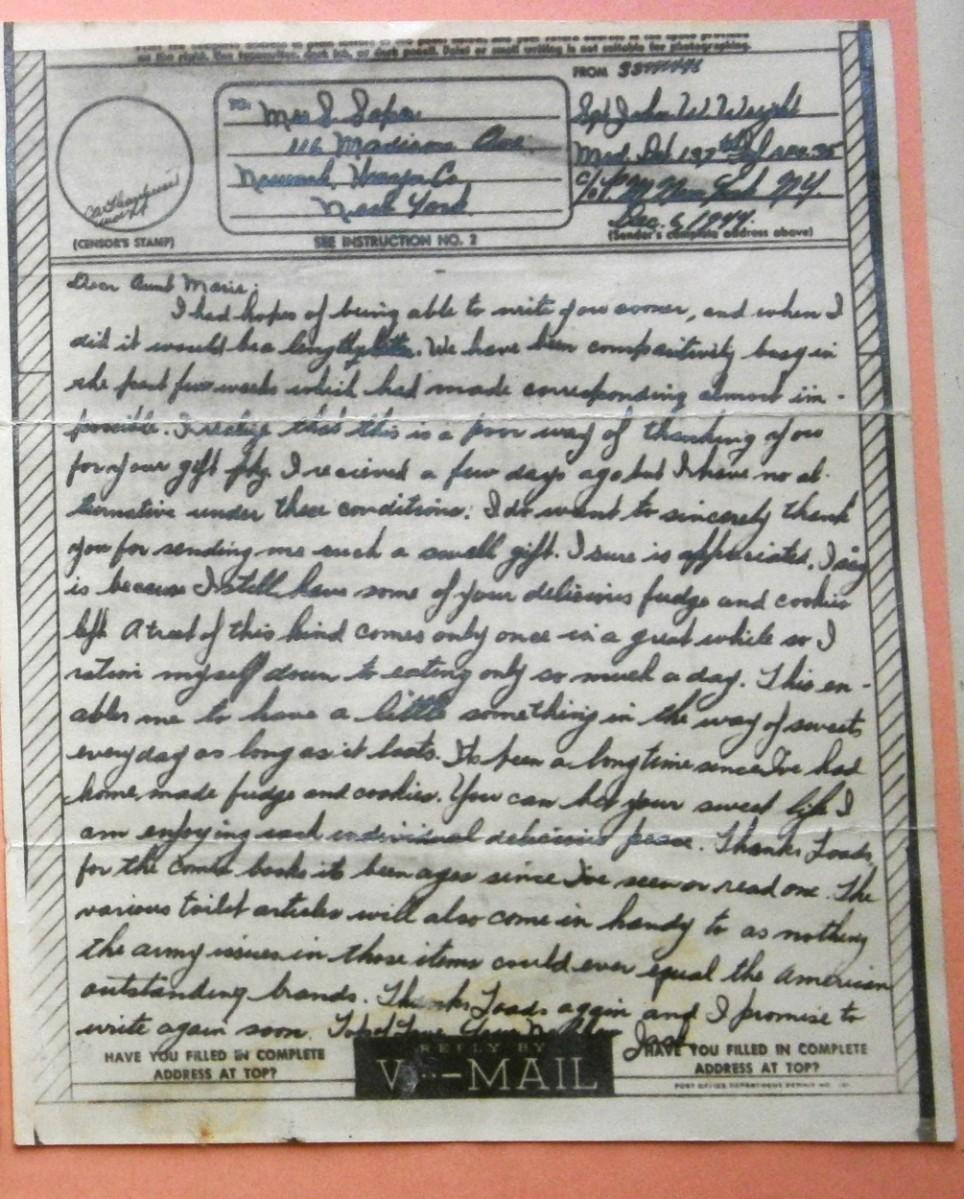 on the right. Use typewriter, dark ink, or dark pencil. Faint or small writing is not suitable for photographing.
FROM
TO:
Mrs S.
116 Madison Ave.
Newark, Wayne Co
New York
Sgt John W. Wright
Med. Det
c/o P.M. New York NY.
Dec. 6, 1944.
(CENSOR'S STAMP)
SEE INSTRUCTION NO. 2
(Sender's complete address above)
Dear Aunt Marie:
I had hopes of being able to write you sooner, and when I
did it would be a lengthy letter. We have been busy in
the past few weeks which had made corresponding almost im-
possible. I realize that this is a poor way of thanking you
for your gift pkg. I recieved a few days ago but I have no al-
ternative under these conditions. I do want to sincerely thank
you for sending me such a swell gift. I sure is appreciated. I say
is because I still have some of your delicious fudge and cookies
left. A treat of this kind comes only once in a great while so I
ration myself down to eating only so much a day. This en-
ables me to have a little something in the way of sweets
everyday as long as it lasts. Its been a long time since I've had
home made fudge and cookies. You can bet your sweet life I
am enjoying each individual delicious peace. Thanks Loads
for the comic books it been ages since I've seen or read one. The
various toilet articles will also come in handy to as nothing
the army issues in those items could ever equal the American
outstanding brands. Thanks Loads again and I promise to
write again soon. Lots of Love Your Nephew
Jack
HAVE YOU FILLED IN COMPLETE
ADDRESS AT TOP?
REPLY BY
V···-MAIL
HAVE YOU FILLED IN COMPLETE
ADDRESS AT TOP?
POST OFFICE DEPARTMENT PERMIT NO.